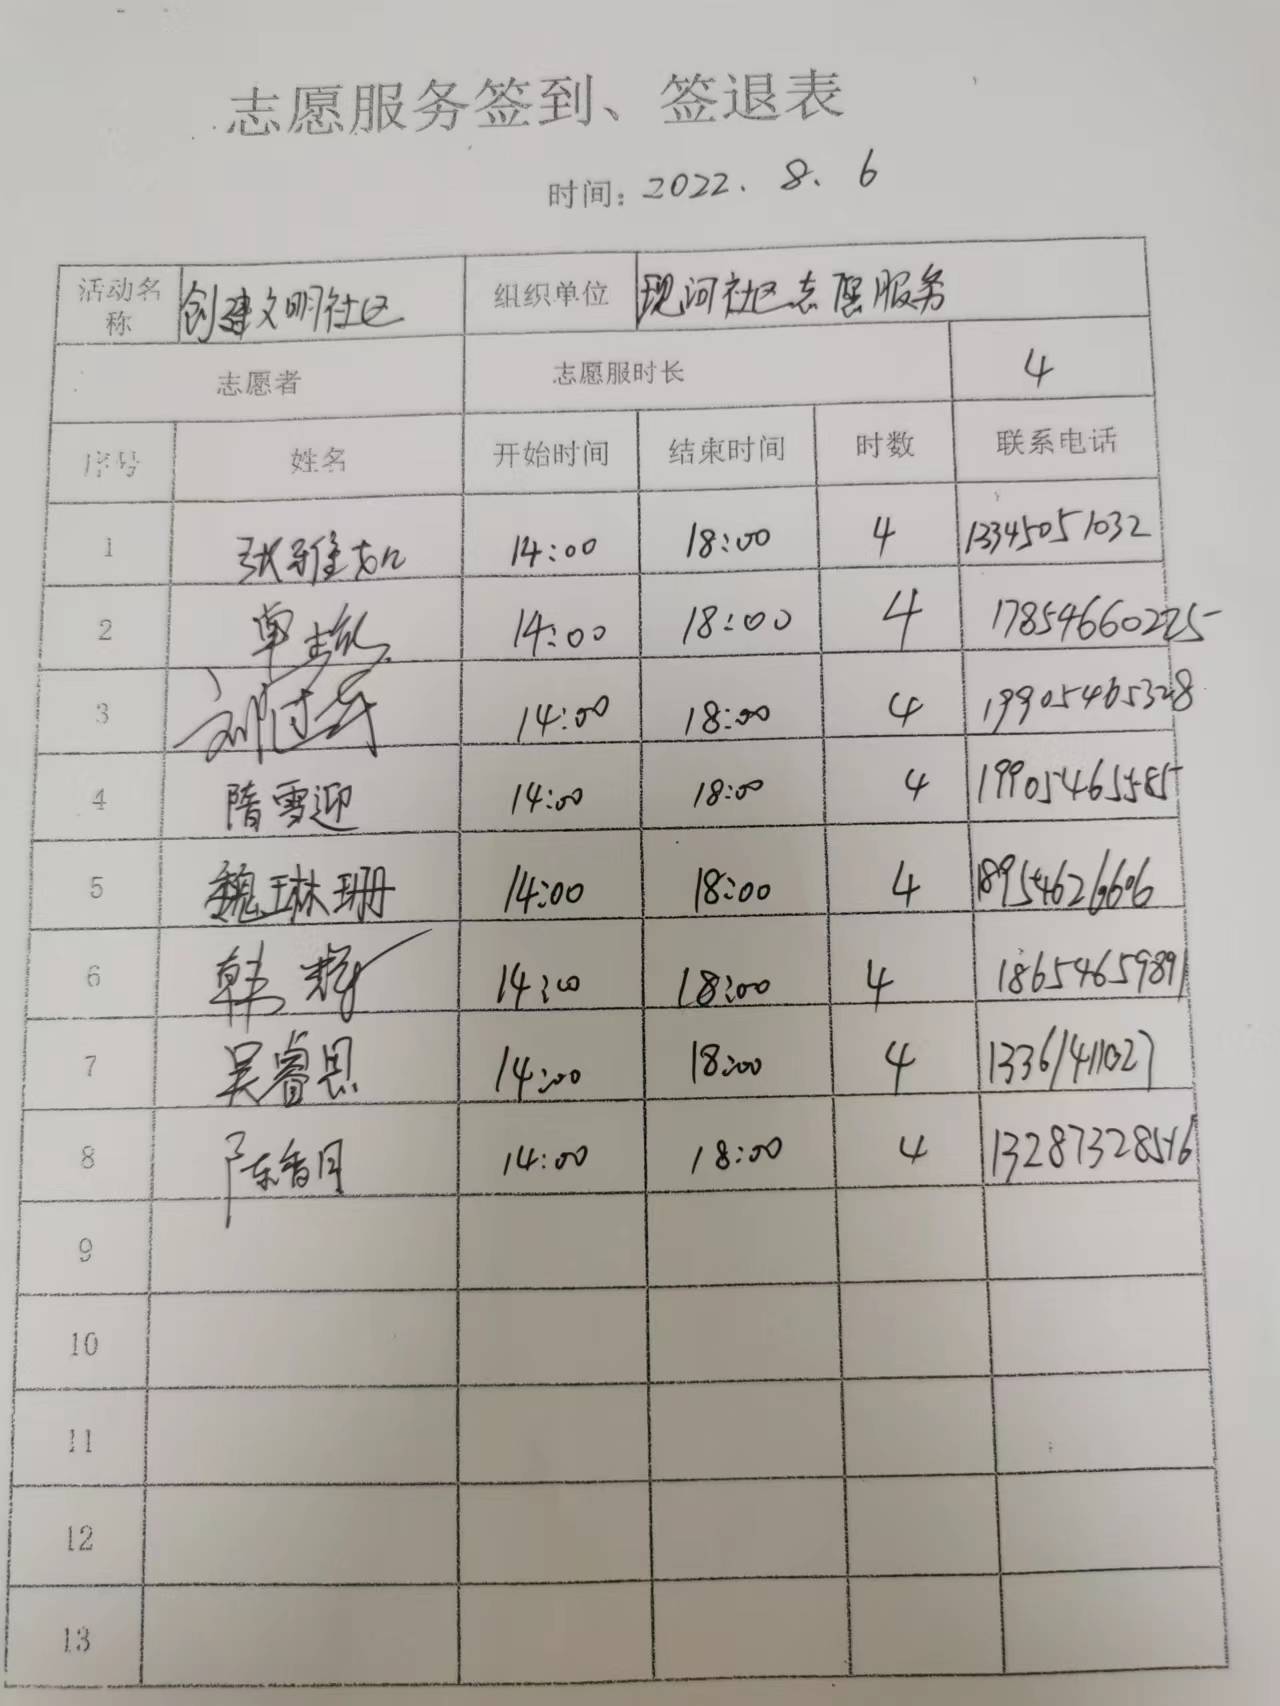 志愿服务签到、签退表
时间：2022.8.6
活动名称 创建文明社区 组织单位 现河社区志愿服务
志愿者 志愿服时长 4
序号 姓名 开始时间 结束时间 时数 联系电话
1 张雅 14:00 18:00 4 13345051032
2 14:00 18:00 4 17854660225
3 刘 14:00 18:00 4 19905465328
4 隋雪迎 14:00 18:00 4 19905465585
5 魏琳珊 14:00 18:00 4 18954626606
6 韩辉 14:00 18:00 4 18654659891
7 吴睿思 14:00 18:00 4 13361411027
8 陈香月 14:00 18:00 4 13287328516
9
10
11
12
13